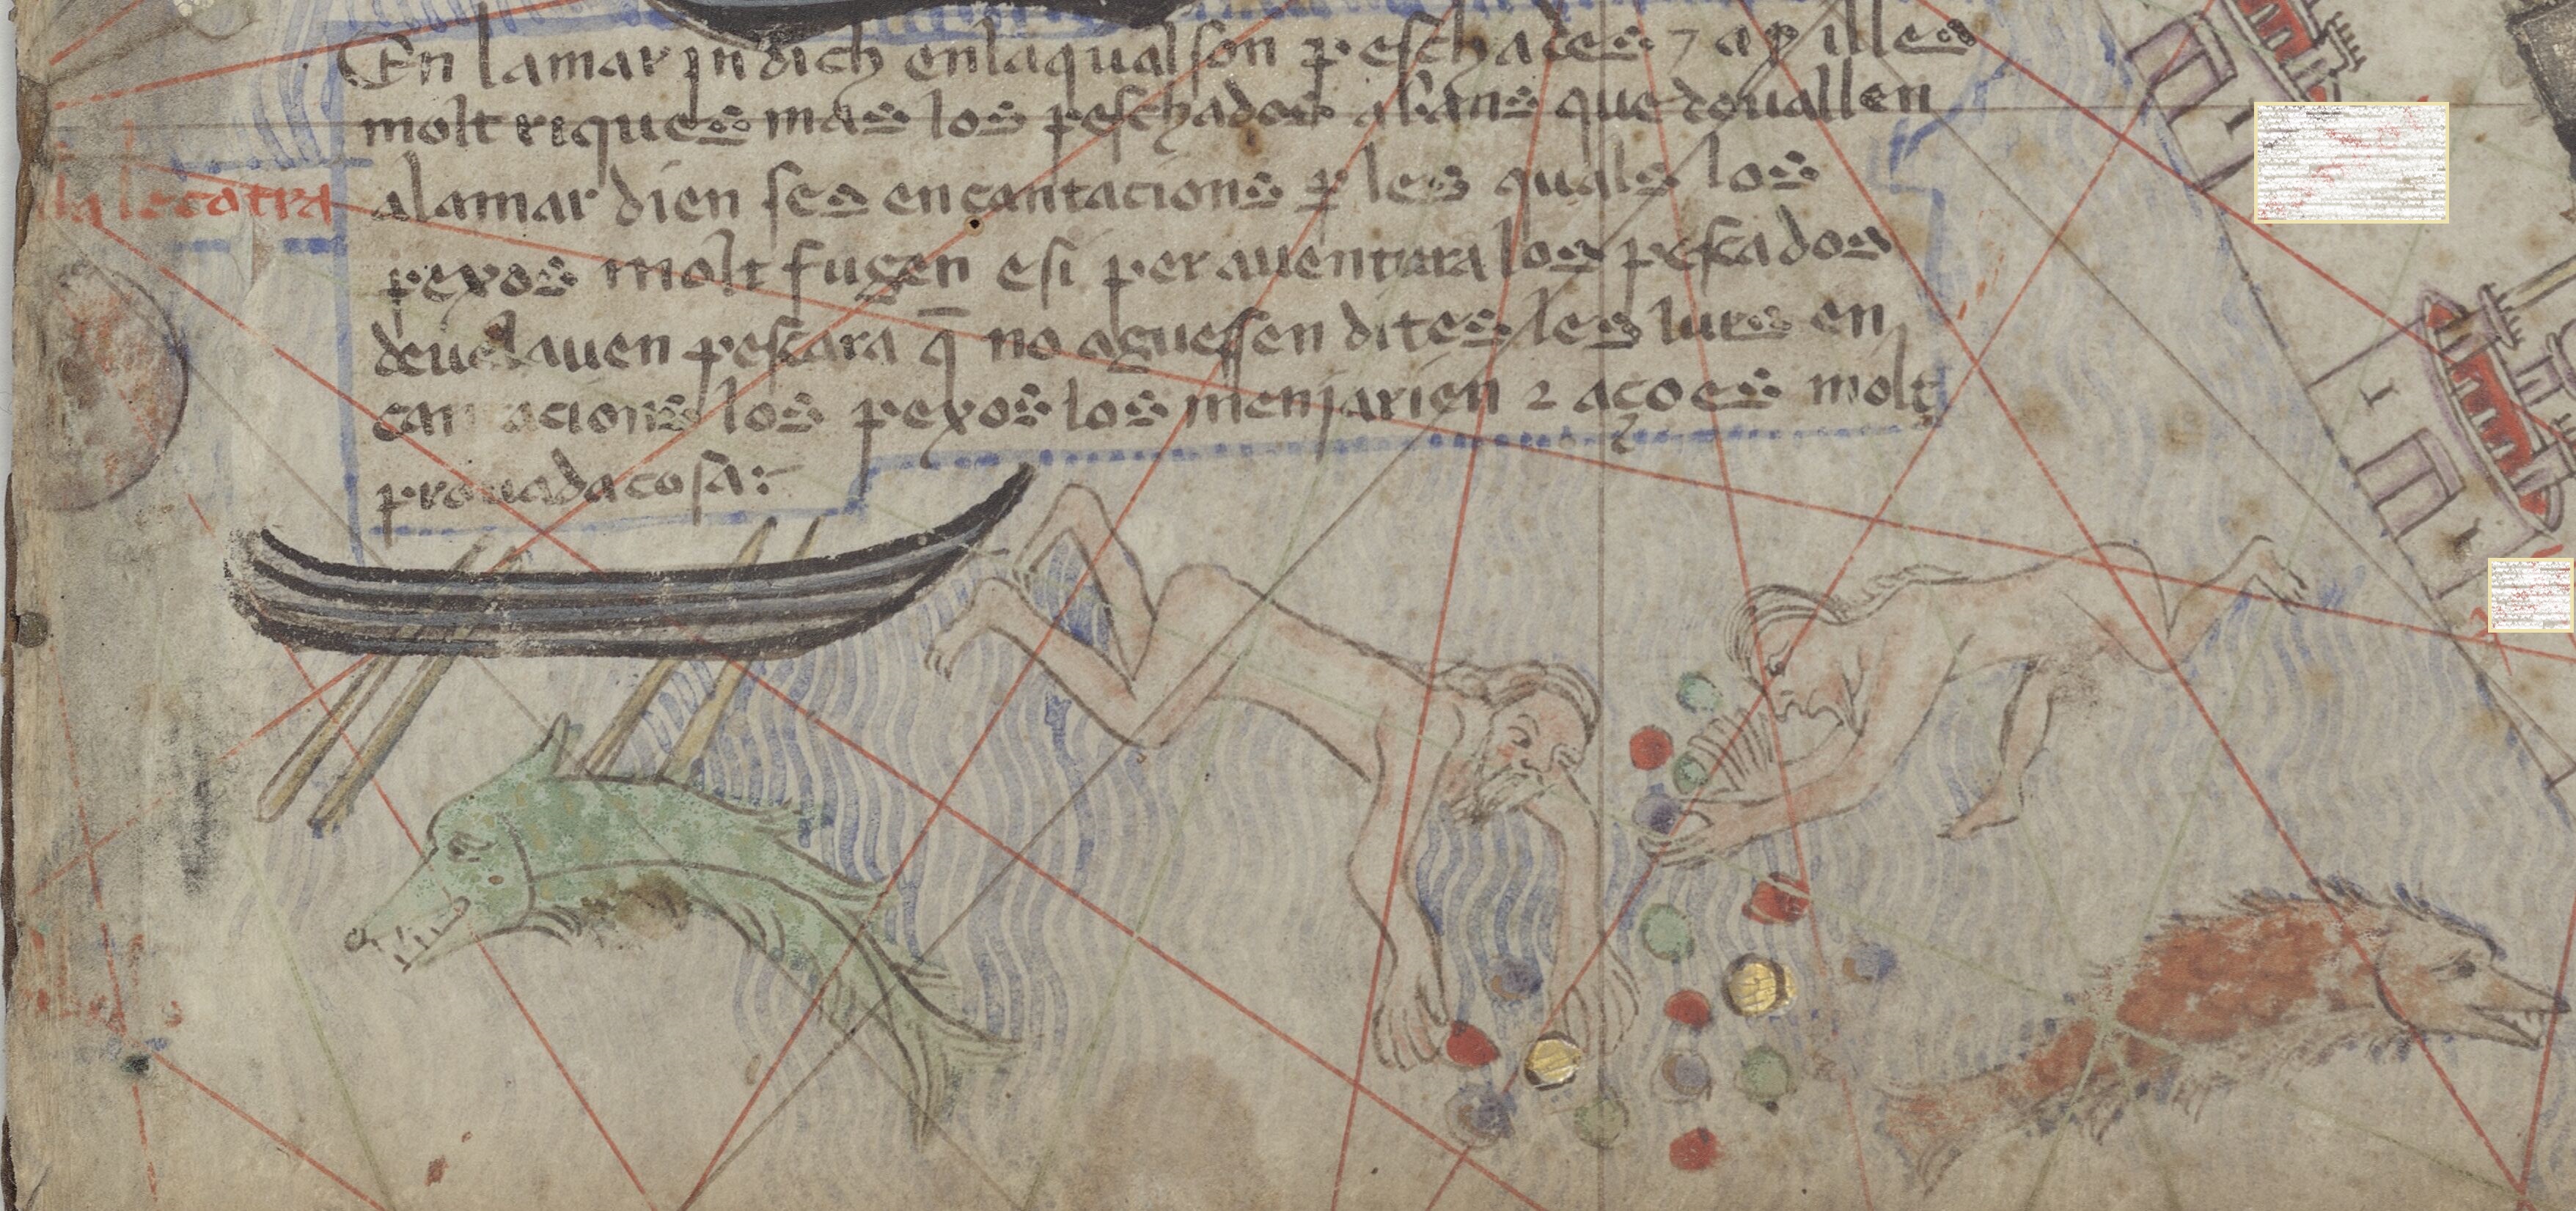 En la mar jndich en la qual son peschades ⁊ apilles
molt riques mas los peschados abans que devallen
a la mar dien ses encantacions ꝑ les quals los
pexos molt fugen e si per auentura los pescados
deuelauen pescar a q̄ no aguessen dites les lurs en
cantacions los pexos los menjarien ⁊ aço es molt
prouada cosa: